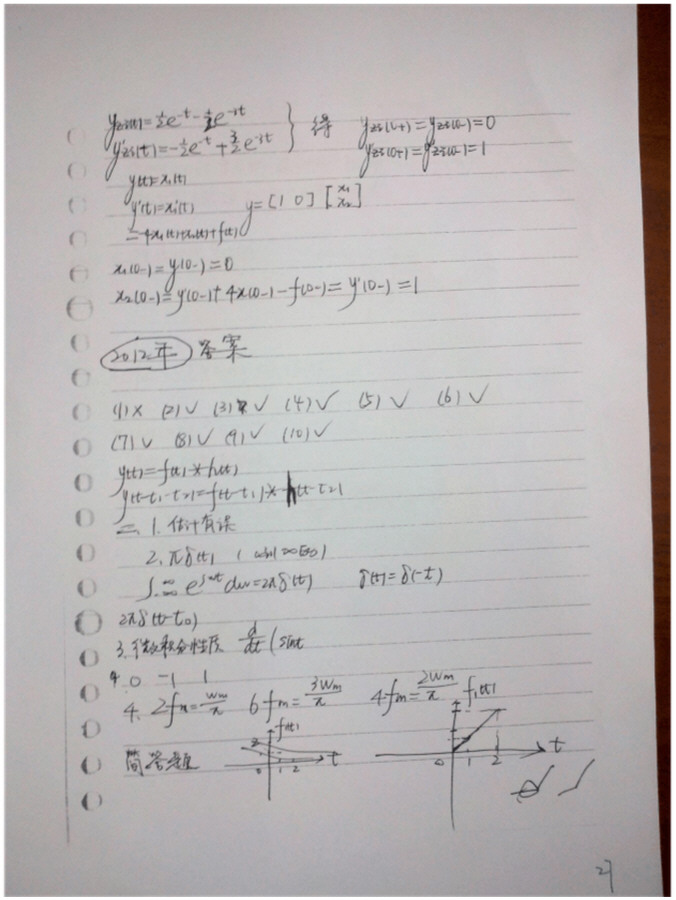 yzs(t)=½e^-t-½e^-3t
y'zs(t)=-½e^-t+3/2e^-3t } 得 yzs(0+)=yzs(0-)=0
y'zs(0+)=y'zs(0-)=1
y(t)=x1(t)
y'(t)=x1'(t) y=[1 0][x1 x2]
=-4x1(t)+x2(t)+f(t)
x1(0-)=y(0-)=0
x2(0-)=y'(0-)+4x(0-)-f(0-)=y'(0-)=1
2012年 答案
(1)× (2)√ (3)√ (4)√ (5)√ (6)√
(7)√ (8)√ (9)√ (10)√
y(t)=f(t)*h(t)
y(t-t1-t2)=f(t-t1)*h(t-t2)
二、1.估计有误
2.πδ(t)
∫-∞^∞ e^jωt dω=2πδ(t) δ(t)=δ(-t)
2πδ(t-t0)
3.微积分性质 d/dt(sint
4. 0 -1 1
4. 2fm=Wm/π 6fm=3Wm/π 4fm=2Wm/π f1(t)
简答题 f(t) 2 0 1 2 t 0 1 2 t
27